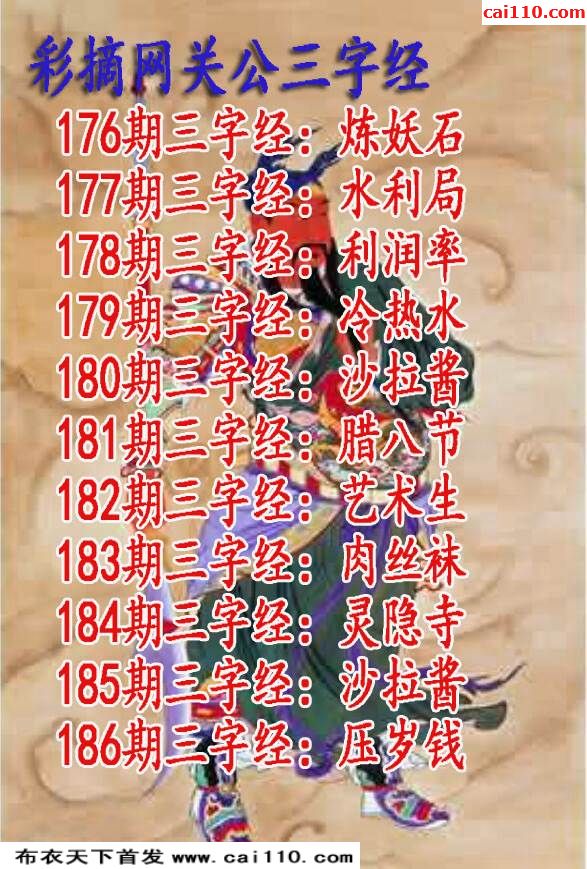 cai110.com
彩摘网关公三字经
176期三字经：炼妖石
177期三字经：水利局
178期三字经：利润率
179期三字经：冷热水
180期三字经：沙拉酱
181期三字经：腊八节
182期三字经：艺术生
183期三字经：肉丝袜
184期三字经：灵隐寺
185期三字经：沙拉酱
186期三字经：压岁钱
布衣天下首发 www.cai110.com